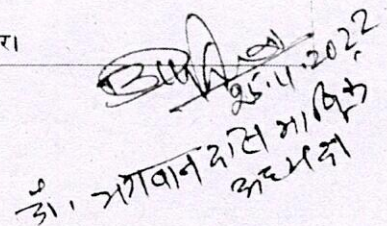 रा
25.11.2022
डॉ. भगवान दास मानिक
अध्यक्ष